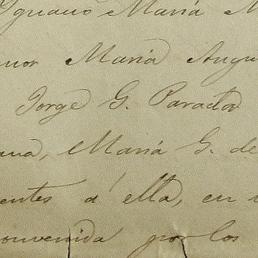 Ignacio María M
nor María Augu
Jorge G. Parada
ana, María G. de
entes á ella, en
convenida por los